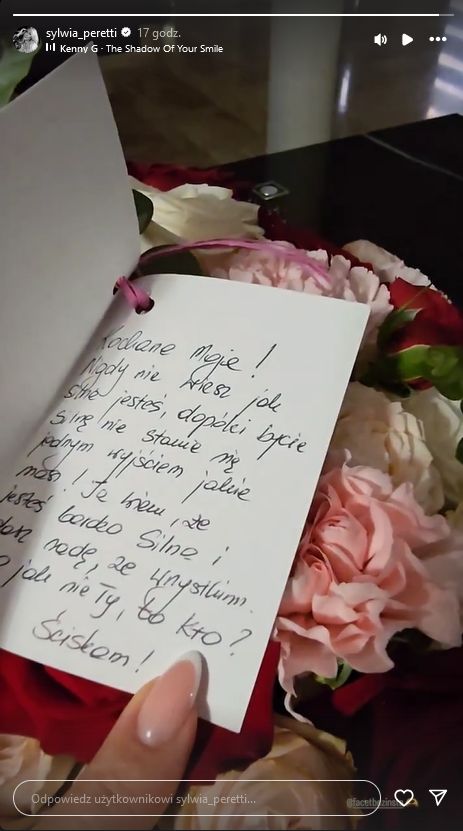 sylwia_peretti 17 godz.
Kenny G · The Shadow Of Your Smile
Kochane Moje!
Nigdy nie wiesz jak
silna jesteś, dopóki bycie
silną nie stanie się
jedynym wyjściem jakie
masz! Ja wiem, że
jesteś bardzo silna i
dasz radę, ze wszystkim.
jak nie Ty, to kto?
Ściskam!
Odpowiedz użytkownikowi sylwia_peretti...